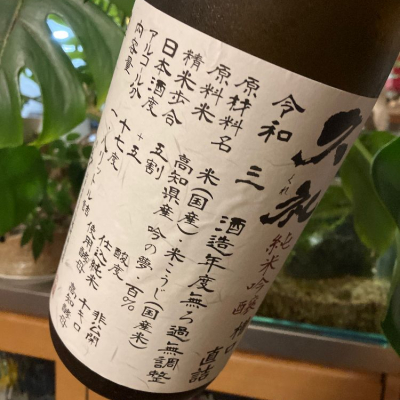 久礼
くれ
純米吟醸 槽口直詰
令和三酒造年度無ろ過無調整
原材料名 米(国産)、米こうじ(国産米)
原料米 高知県産 吟の夢 百%
精米歩合 五割
日本酒度 +五 酸度 非公開
アルコール分 十七度 仕込純米 千キロ
内容量 使用酵母 高知酵母